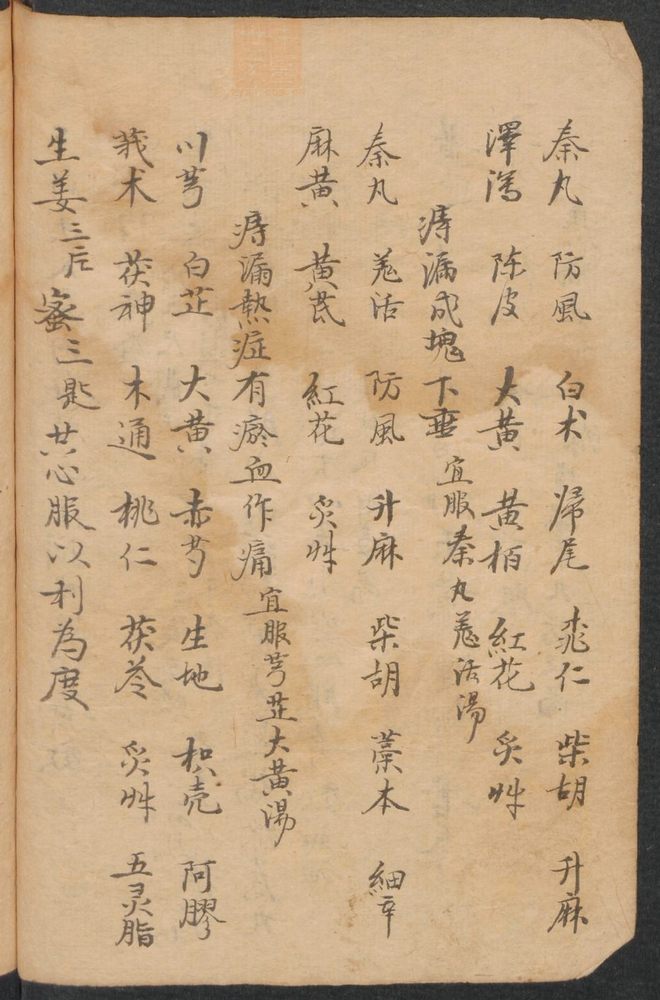 秦丸 防風 白术 归尾 桃仁 柴胡 升麻
澤瀉 陈皮 大黄 黄栢 紅花 炙艸
痔漏成塊下垂 宜服秦丸羗活湯
秦丸 羗活 防風 升麻 柴胡 藁本 細辛
麻黄 黄芪 紅花 炙艸
痔漏熱症有瘀血作痛 宜服芎芷大黄湯
川芎 白芷 大黄 赤芍 生地 枳壳 阿膠
莪术 茯神 木通 桃仁 茯苓 炙艸 五灵脂
生姜三片 蜜三匙 共心服以利為度